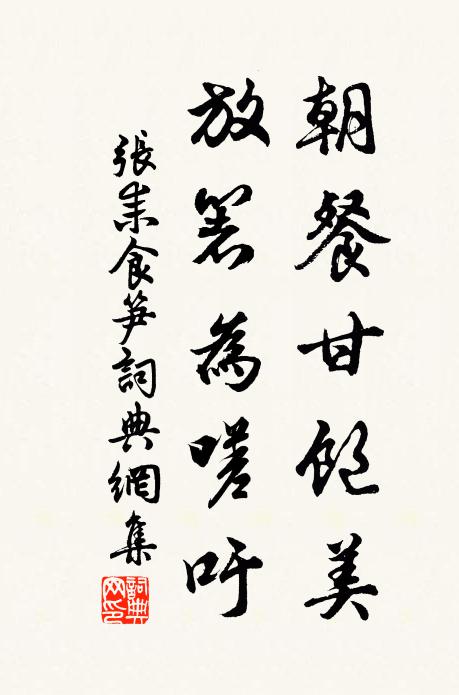 朝餐甘飽美
放箸為嗟吁
張耒食笋詞典網集
詞典
网印